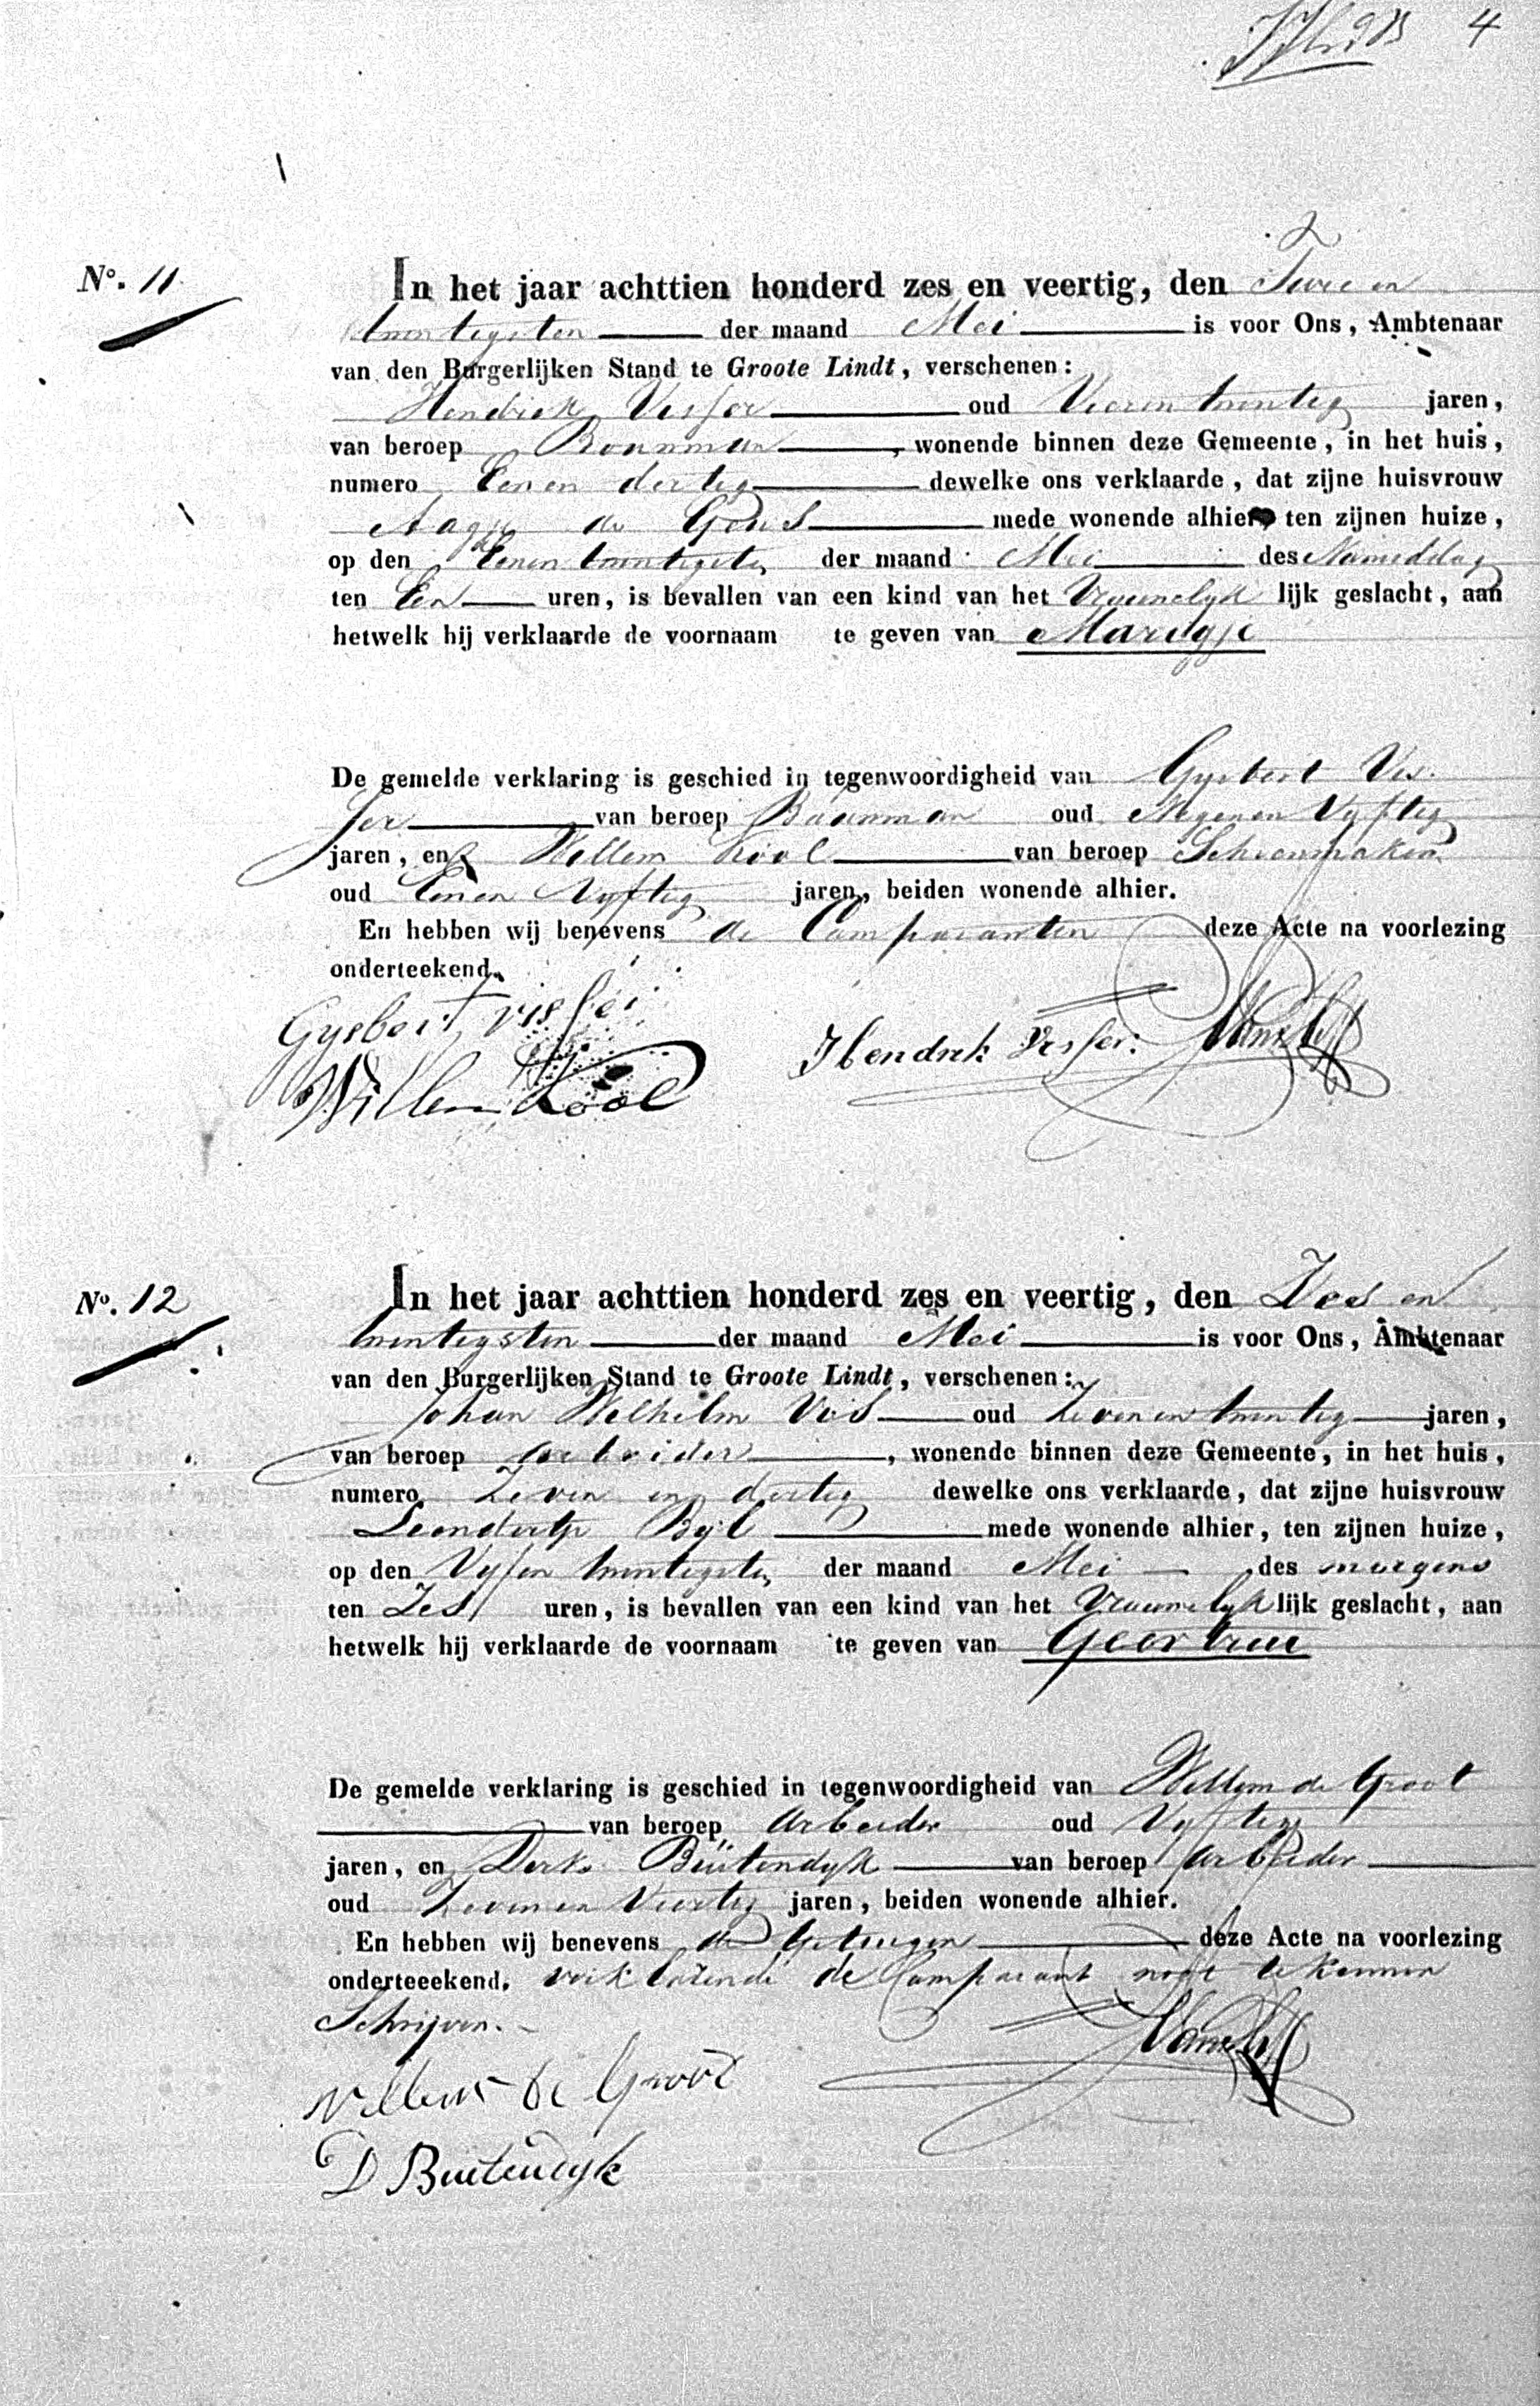 4
No. 11
In het jaar achttien honderd zes en veertig, den Twee en
twintigsten der maand Mei is voor Ons, Ambtenaar
van den Burgerlijken Stand te Groote Lindt, verschenen:
Hendrik Visser oud Vieren twintig jaren,
van beroep Bouwman, wonende binnen deze Gemeente, in het huis,
numero Eenen dertig dewelke ons verklaarde, dat zijne huisvrouw
Aagje de Geus mede wonende alhier, ten zijnen huize,
op den Eenen twintigste der maand Mei des Namiddag
ten Een uren, is bevallen van een kind van het Vrouwelyk lijk geslacht, aan
hetwelk hij verklaarde de voornaam te geven van Marigje
De gemelde verklaring is geschied in tegenwoordigheid van Gysbert Vis
ser van beroep Bouwman oud Negenen Vyftig
jaren, en Willem Kool van beroep Schoenmaker
oud Eenen Vyftig jaren, beiden wonende alhier.
En hebben wij benevens de Comparanten deze Acte na voorlezing
onderteekend.
Gysbert visser
Hendrik Visser
Willem Kool
No. 12
In het jaar achttien honderd zes en veertig, den Zes en
twintigsten der maand Mei is voor Ons, Ambtenaar
van den Burgerlijken Stand te Groote Lindt, verschenen:
Johan Wilhelm Vos oud Zevenen twintig jaren,
van beroep arbeider, wonende binnen deze Gemeente, in het huis,
numero Zeven en dertig dewelke ons verklaarde, dat zijne huisvrouw
Leendertje Byl mede wonende alhier, ten zijnen huize,
op den Vyfen twintigste der maand Mei des morgens
ten Zes uren, is bevallen van een kind van het Vrouwelyk lijk geslacht, aan
hetwelk hij verklaarde de voornaam te geven van Geertrui
De gemelde verklaring is geschied in tegenwoordigheid van Willem de Groot
van beroep Arbeider oud Vyftig
jaren, en Derk Buitendyk van beroep Arbeider
oud Zevenen Veertig jaren, beiden wonende alhier.
En hebben wij benevens de Getuigen deze Acte na voorlezing
onderteeekend. verklarende de Comparant niet te kennen
Schrijven.
Willem de Groot
D Buitendyk